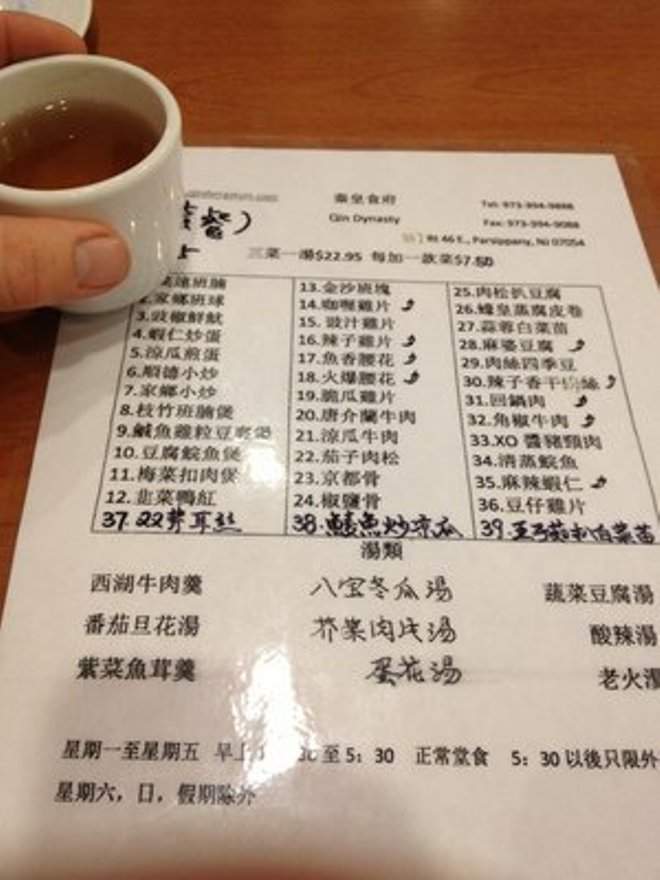 秦皇食府 Tel: 973-994-9888
Qin Dynasty Fax: 973-994-9088
街 46 E., Parsippany, NJ 07054
餐)
三菜一湯$22.95 每加一款菜$7.50
班腩
2.家鄉班球
3.豉椒鮮魷
4.蝦仁炒蛋
5.涼瓜煎蛋
6.順德小炒
7.家鄉小炒
8.枝竹班腩煲
9.鹹魚雞粒豆腐煲
10.豆腐鯇魚煲
11.梅菜扣肉煲
12.韭菜鴨紅
13.金沙班塊
14.咖喱雞片
15. 豉汁雞片
16.辣子雞片
17.魚香腰花
18.火爆腰花
19.脆瓜雞片
20.唐介蘭牛肉
21.涼瓜牛肉
22.茄子肉松
23.京都骨
24.椒鹽骨
25.肉松扒豆腐
26.蠔皇蒸腐皮卷
27.蒜蓉白菜苗
28.麻婆豆腐
29.肉絲四季豆
30.辣子香干肉絲
31.回鍋肉
32.角椒牛肉
33.XO 醬豬頸肉
34.清蒸鯇魚
35.麻辣蝦仁
36.豆仔雞片
37. 耳丝 38. 鯪魚炒凉瓜 39. 扒白菜苗
湯類
西湖牛肉羹 八宝冬瓜湯 蔬菜豆腐湯
番茄旦花湯 芥菜肉片湯 酸辣湯
紫菜魚茸羹 蛋花湯 老火湯
星期一至星期五 早上 至 5: 30 正常堂食 5: 30 以後只限外
星期六，日，假期除外